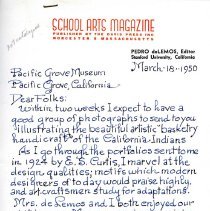 SCHOOL ARTS MAGAZINE
PUBLISHED BY THE DAVIS PRESS INC
WORCESTER 8 MASSACHUSETTS
PEDRO deLEMOS, Editor
Stanford University, California
March-18-1950
Pacific Grove Museum
Pacific Grove, California
Dear Folks:
Within two weeks I expect to have a
good group of photographs to send to you
illustrating the beautiful artistic basketry
handicraft of the California Indians
As I go through the portfolios sent to me
in 1924 by E. S. Curtis, I marvel at the
design qualities; motifs which modern
designers of to day would praise highly,
and art craftsmen study for adaptations.
Mrs. de Lemos and I both enjoyed our